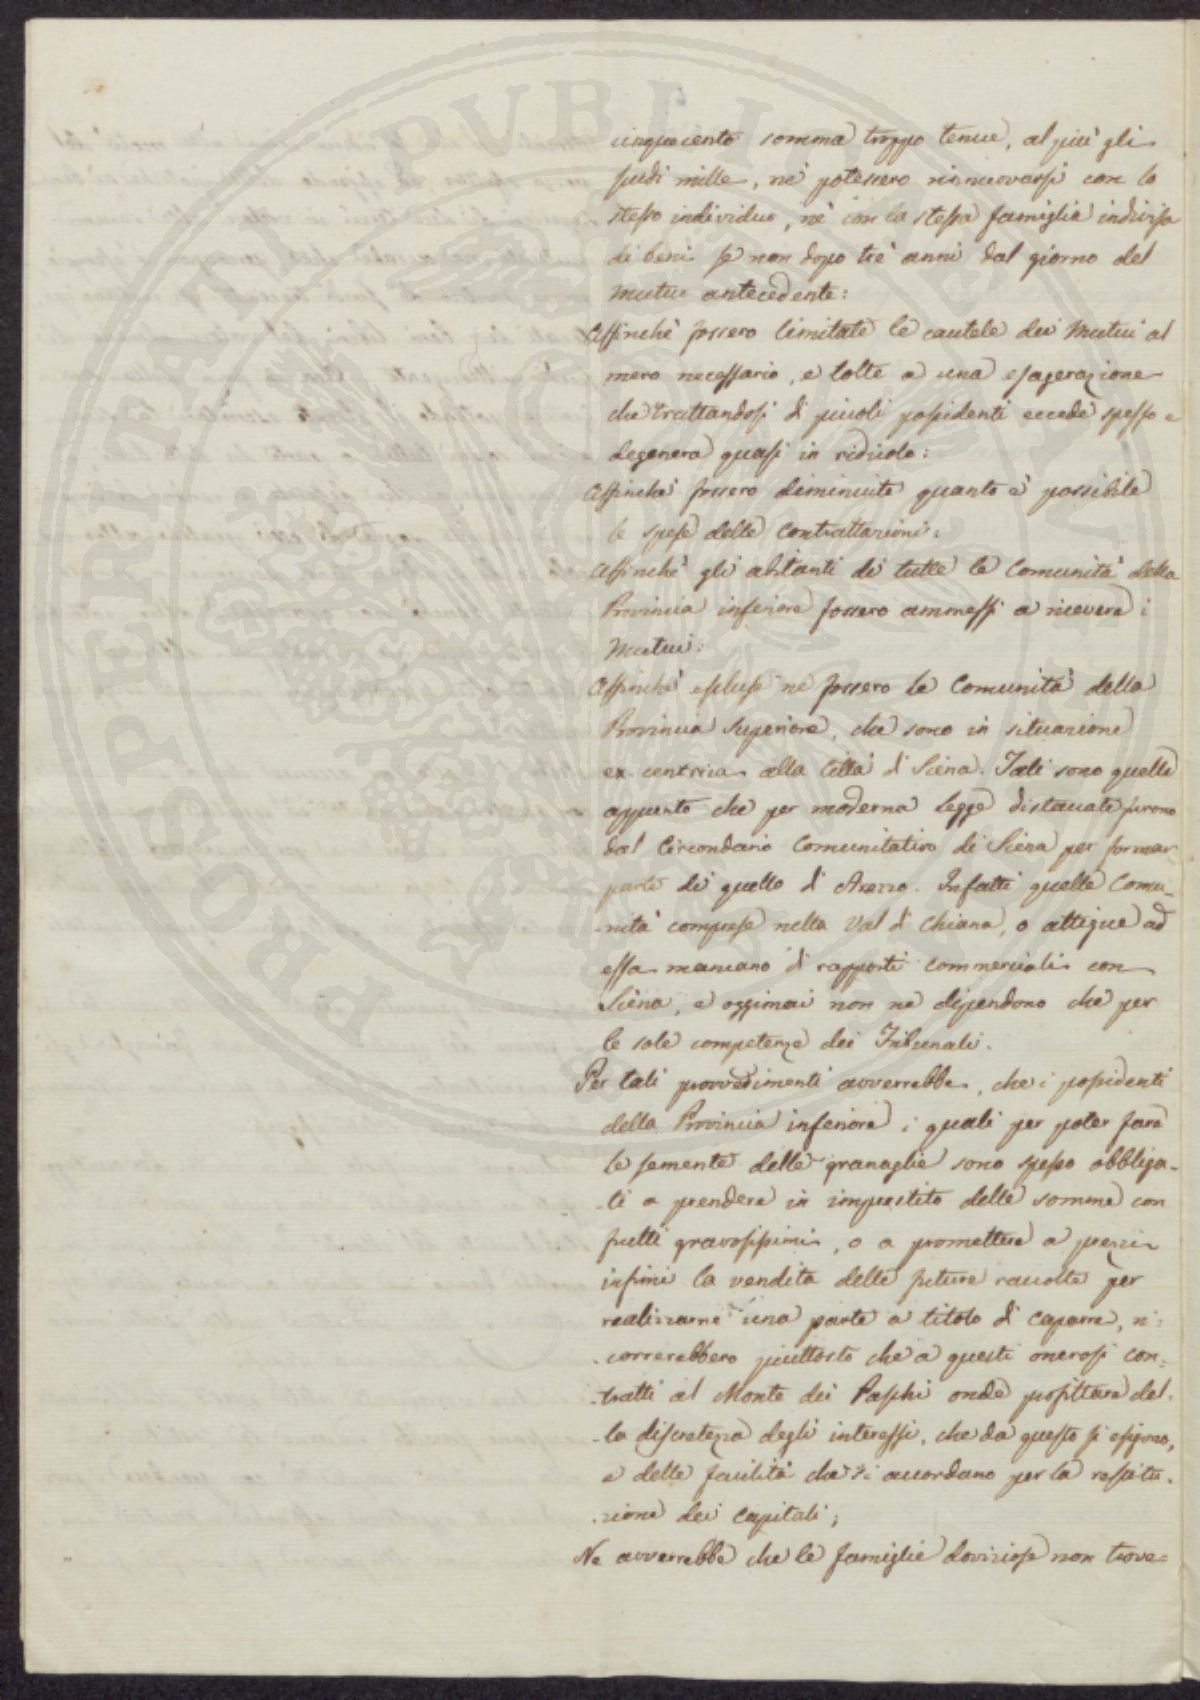 cinquecento somma troppo tenue, al piu' gli
scudi mille, nè potessero rinnuovarsi con lo
stesso individuo, nè con la stessa famiglia indivisa
di beni se non dopo trè anni dal giorno del
Mutuo antecedente:
Affinchè fossero limitate le cautele dei Mutui al
mero necessario, e tolte a una esagerazione
che trattandosi di piccoli possidenti eccede spesso e
degenera quasi in ridicolo:
Affinchè fossero diminuite quanto è possibile
le spese delle contrattazioni:
Affinchè gli abitanti di tutte le Comunità della
Provincia inferiore fossero ammessi a ricevere i
Mutui:
Affinchè escluse ne fossero le Comunità della
Provincia Superiore, che sono in situazione
ex centrica alla Città di Siena. Tali sono quelle
appunto che per moderna Legge distaccate furono
dal Circondario Comunitativo di Siena per formar
parte di quello di Arezzo. Infatti quelle Comu-
-nità comprese nella Val di Chiana, o attigue ad
essa mancano di rapporti commerciali con
Siena, e oggimai non ne dipendono che per
le sole competenze dei Tribunali.
Per tali provvedimenti avverrebbe, che i possidenti
della Provincia inferiore i quali per poter fare
le semente delle granaglie sono spesso obbliga-
-ti a prendere in imprestito delle somme con
frutti gravosissimi, o a promettere a prezzi
infimi la vendita delle future raccolte per
realizzarne una parte a titolo di caparra, ri:
-correrebbero piuttosto che a questi onerosi con:
-tratti al Monte dei Paschi onde profittare del-
-la discretezza degli interessi, che da questo si esigono,
e delle facilità che si accordano per la restitu-
-zione dei capitali;
Ne avverrebbe che le famiglie doviziose non trove=
PROSPERITATI PVBLICAE